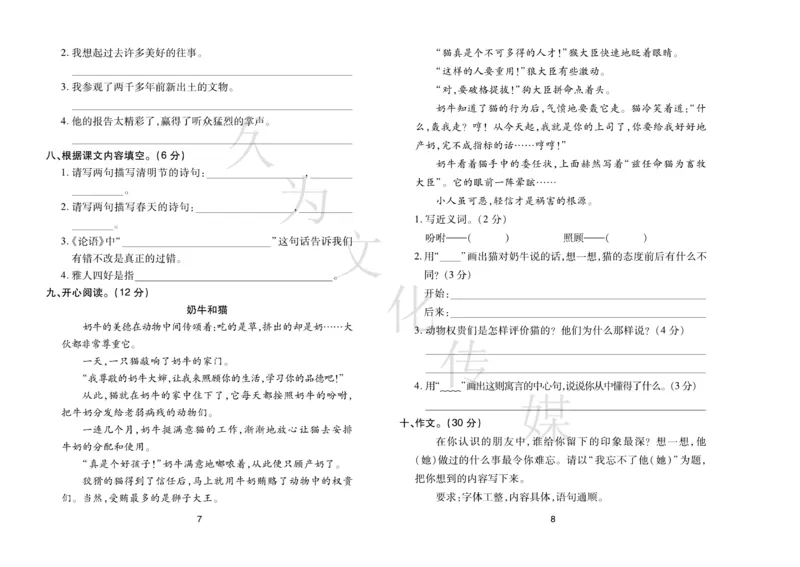 2. 我想起过去许多美好的往事。
3. 我参观了两千多年前新出土的文物。
4. 他的报告太精彩了,赢得了听众猛烈的掌声。
八、根据课文内容填空。(6 分)
1. 请写两句描写清明节的诗句:,
。
2. 请写两句描写春天的诗句:,
。
3.《论语》中“”这句话告诉我们
有错不改是真正的过错。
4. 雅人四好是指。
九、开心阅读。(12 分)
奶牛和猫
奶牛的美德在动物中间传颂着:吃的是草,挤出的却是奶……大
伙都非常尊重它。
一天,一只猫敲响了奶牛的家门。
“我尊敬的奶牛大婶,让我来照顾你的生活,学习你的品德吧!”
从此,猫就在奶牛的家中住下了,它每天都按照奶牛的吩咐,
把牛奶分发给老弱病残的动物们。
一连几个月,奶牛挺满意猫的工作,渐渐地放心让猫去安排
牛奶的分配和使用。
“真是个好孩子!”奶牛满意地嘟哝着,从此便只顾产奶了。
狡猾的猫得到了信任后,马上就用牛奶贿赂了动物中的权贵
们。当然,受贿最多的是狮子大王。
7
“猫真是个不可多得的人才!”猴大臣快速地眨着眼睛。
“这样的人要重用!”狼大臣有些激动。
“对,要破格提拔!”狗大臣拼命点着头。
奶牛知道了猫的行为后,气愤地要轰它走。猫冷笑着道:“什
么,轰我走?哼!从今天起,我就是你的上司了,你要给我好好地
产奶,完不成指标的话……哼哼!”
奶牛看着猫手中的委任状,上面赫然写着“兹任命猫为畜牧
大臣”。它的眼前一阵晕眩……
小人虽可恶,轻信才是祸害的根源。
1. 写近义词。(2 分)
吩咐——( ) 照顾——( )
2. 用“____”画出猫对奶牛说的话,想一想,猫的态度前后有什么不
同?(3 分)
开始:
后来:
3. 动物权贵们是怎样评价猫的?他们为什么那样说?(4 分)
4. 用“﹏﹏”画出这则寓言的中心句,说说你从中懂得了什么。(3 分)
十、作文。(30 分)
在你认识的朋友中,谁给你留下的印象最深?想一想,他
(她)做过的什么事最令你难忘。请以“我忘不了他(她)”为题,
把你想到的内容写下来。
要求:字体工整,内容具体,语句通顺。
8
久为文化传媒